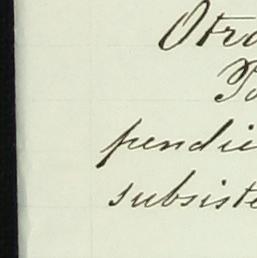 Otro
To
pendie
subsiste